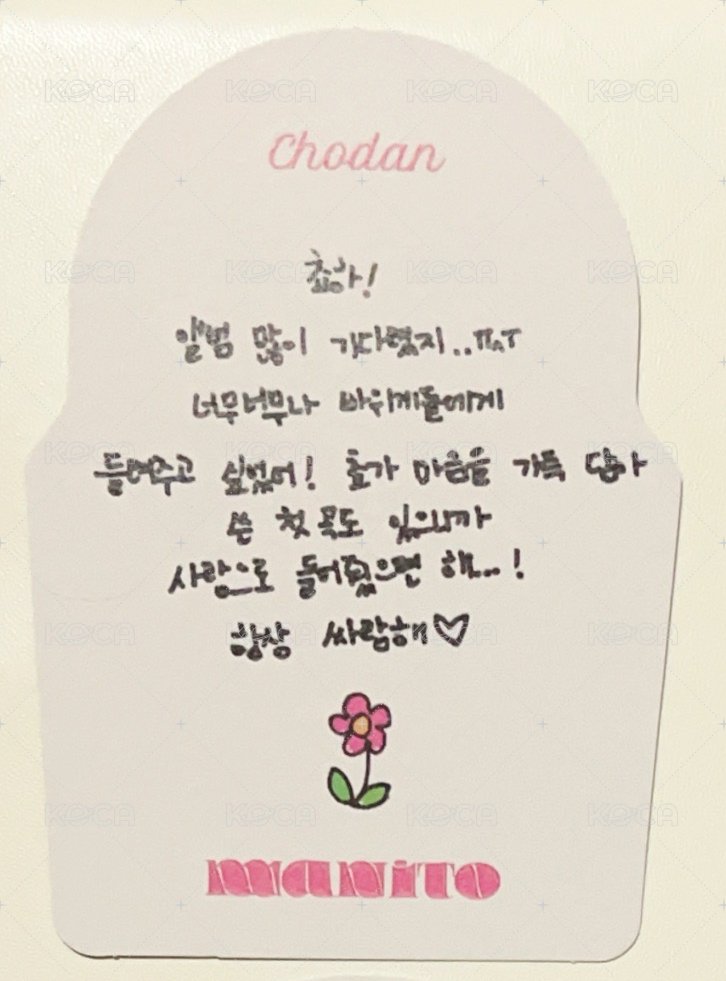 Chodan
쵸하!
앨범 많이 기다렸지..ㅠㅅㅜ
너무너무나 바위게들에게
들려주고 싶었어! 쵸가 마음을 가득 담아
쓴 첫 곡도 있으니까
사랑으로 들어줬으면 해...!
항상 싸랑해♡
MANITO